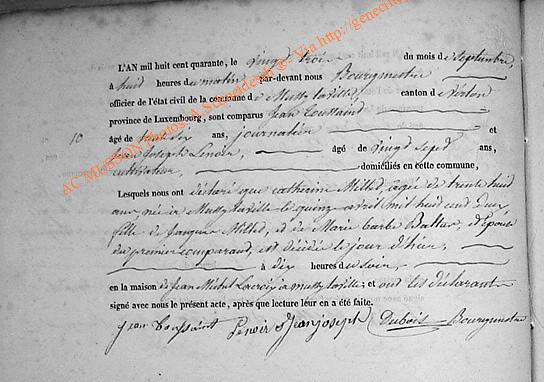 L'AN mil huit cent quarante, le vingt trois du mois de septembre,
à huit heures du matin par-devant nous Bourgmestre
officier de l'état civil de la commune de Mussy laville canton de Virton
province de Luxembourg, sont comparus Jean Toussaint
10 âgé de ans, journalier et
Jean Joseph Lenoir, âgé de vingt sept ans,
cultivateur, domiciliés en cette commune,
Lesquels nous ont déclaré que catherine Millid agée de trente huit
ans, née à Mussy laville le quinze avril mil huit cent deux
fille de Jacques Millid, et de Marie barbe épouse
du premier comparant, est décédée le jour d'hier,
à dix heures du soir,
en la maison de Jean Michel Lacroix à mussy laville; et ont les déclarant
signé avec nous le présent acte, après que lecture leur en a été faite.
jean Toussaint Lenoir Jean joseph Dubois Bourgmestre
AC MUSSON Photos A. Schneider - Via http://gene